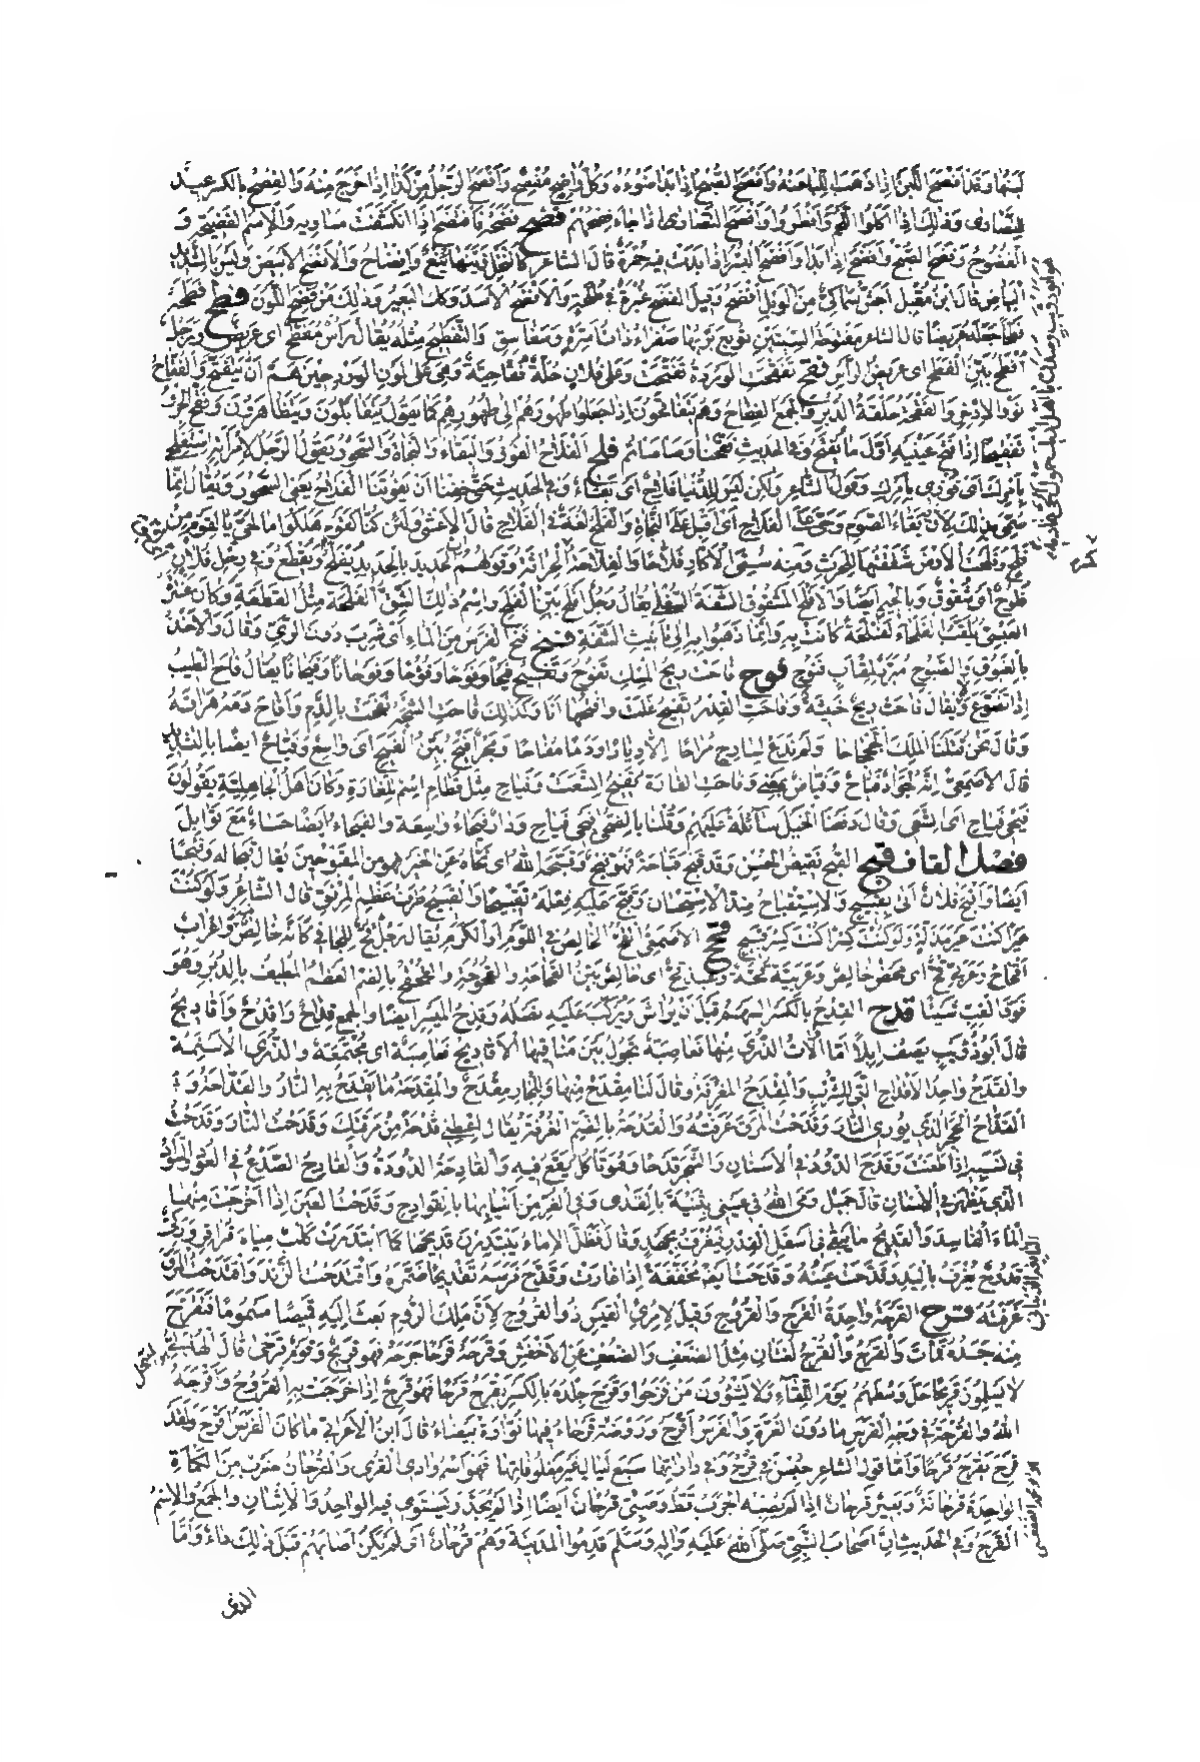 لبنها وقد أفصح اللبن إذا ذهب اللبأ عنه وأفصح الصبح إذا بدا ضوءه وكل واضح مفصح وأفصح الرجل من كذا إذا خرج منه والفصح بالكسر عيد
النصارى وذلك إذا أكلوا اللحم وأفطروا وأفصح النصارى إذا جاء فصحهم فضح فضحه فافتضح إذا انكشفت مساويه والاسم الفضيحة و
الفضوح وفضح الصبح وأفضح إذا بدا وأفضح البسر إذا بدت فيه حمرة قال الشاعر والأفضح الأبيض وليس بالشديد
البياض قال ابن مقبل أجش سماكي من الوبل أفضح وقيل الفضح غبرة في طحلة والأفضح الأسد وكذلك البعير وذلك من فضح اللون فطح فطحه
فطحا جعله عريضا قال الشاعر مفطوحة السيتين توبع بريها صفراء ذات أسرة وسفاسق والتفطيح مثله يقال رأس مفطح أي عريض ورجل
أفطح بين الفطح أي عريض الرأس فقح تفقحت الوردة تفتحت وعلى فلان حلة فقاحية وهي على لون الورد حين هم أن يتفتح والفقاح
نور الإذخر والفقحة حلقة الدبر والجمع الفقاح وهم يتفاقحون إذا جعلوا ظهورهم إلى ظهورهم كما يقول يتقابلون ويتظاهرون وفقح الجرو
تفقيحا إذا فتح عينيه أول ما يفتح وفي الحديث فقحنا وصأصأتم فلح الفلاح الفوز والبقاء والنجاة والسحور يقول الرجل لامرأته استفلحي
بأمرك أي فوزي بأمرك وقول الشاعر ولكن ليس للدنيا فلاح أي بقاء وفي الحديث حتى خفنا أن يفوتنا الفلاح يعني السحور ويقال إنما
سمي بذلك لأن به بقاء الصوم وحي على الفلاح أي أقبل على النجاة والفلح لغة في الفلاح قال الأعشى ولئن كنا كقوم هلكوا ما لحي يا لقوم من
فلح وفلحت الأرض شققتها للحرث ومنه سمي الأكار فلاحا والفلاحة الحراثة وقولهم الحديد بالحديد يفلح أي يشق ويقطع وفي رجل فلان
فلوح أي شقوق وبالجيم أيضا والأفلح المشقوق الشفة السفلى يقال رجل أفلح بين الفلح واسم ذلك الشق الفلحة مثل القطعة وكان عنترة
العبسي يلقب الفلحاء لفلحة كانت به وإنما ذهبوا به إلى تأنيث الشفة فنح فنح الفرس من الماء أي شرب دون الري وقال والأخذ
بالغبوق والصبوح مبردا لمقأب فنوح فوح فاحت ريح المسك تفوح وتفيح فيحا وفوحا وفؤوحا وفوحانا وفيحانا يقال فاح الطيب
إذا تضوع ولا يقال فاحت ريح خبيثة وفاحت القدر تفيح غلت وأفحتها أنا وكذلك فاحت الشجة نفحت بالدم وأفاح دمه هراقه
وقال نحن قتلنا الملك الجحجاحا ولم ندع لسارح مراحا إلا ديارا ودما مفاحا وبحر أفيح بين الفيح أي واسع وفياح أيضا بالتشديد
قال الأصمعي إنه لجواد فياح وفياض بمعنى وفاحت الغارة تفيح اتسعت وفياح مثل قطام اسم للغارة وكان أهل الجاهلية يقولون
فيحي فياح أي اتسعي وقال دفعنا الخيل سائلة عليهم وقلنا بالضحى فيحي فياح ودار فيحاء واسعة والفيحاء أيضا حساء مع توابل
فصل القاف قبح القبح نقيض الحسن وقد قبح قباحة فهو قبيح وقبحه الله أي نحاه عن الخير فهو من المقبوحين يقال قبحا له وقبحا
أيضا وأقبح فلان أتى بقبيح والاستقباح ضد الاستحسان وقبح عليه فعله تقبيحا والقبيح طرف عظم المرفق قال الشاعر ولو كنت
عيرا كنت عير مذلة ولو كنت كسرا كنت كسر قبيح قحح الأصمعي القح الخالص في اللؤم أو الكرم يقال رجل قح للجافي كأنه خالص فيه وأعراب
أقحاح وعربي قح أي محض خالص وعربية قحة وعبد قح أي خالص بين القحاحة والقحوحة والقحقح بالضم العظم المطيف بالدبر وهو
فوق القب شيئا قدح القدح بالكسر السهم قبل أن يراش ويركب عليه نصله وقدح الميسر أيضا والجمع قداح وأقداح وأقاديح
قال أبو ذؤيب يصف إبلا أما أولات الذرى منها فعاصبة تجول بين مناقيها الأقاديح فعاصبة أي مجتمعة والذرى الأسنمة
والقدح واحد الأقداح التي للشرب والمقدح المغرفة وقال لنا مقدح منها وللجار مقدح والمقدحة ما يقدح به النار والقداحة و
القداح الحجر الذي يوري النار وقدحت المرق غرفته والقدحة بالضم الغرفة يقال أعطني قدحة من مرقتك وقدحت النار وقدحت
في نسبه إذا طعنت وقدح الدود في الأسنان والشجر قدحا وهو تأكل يقع فيه والقادحة الدودة والقادح الصدع في العود والسواد
الذي يظهر في الأسنان قال جميل رمى الله في عيني بثينة بالقذى وفي الغر من أنيابها بالقوادح وقدحت العين إذا أخرجت منها
الماء الفاسد والقديح ما يبقى في أسفل القدر فيغرف بجهد وقال فظل الإماء يبتدرن قديحها كما ابتدرت كلب مياه قراقر وركي
قدوح يغرف باليد وقدحت عينه وقدحت أيضا مخففة إذا غارت وقدح فرسه تقديحا ضمره واقتدحت الزند واقتدحت المرق
غرفته قرح القرحة واحدة القرح والقروح وقيل لامرئ القيس ذو القروح لأن ملك الروم بعث إليه قميصا مسموما فتقرح
منه جسده فمات والقرح والقرح لغتان مثل الضعف والضعف عن الأخفش وقرحه قرحا جرحه فهو قريح وقوم قرحى قال الهذلي
لا يسلمون قريحا حل وسطهم يوم اللقاء ولا يشوون من قرحوا وقرح جلده بالكسر يقرح قرحا فهو قرح إذا خرجت به القروح وأقرحه
الله والقرحة في وجه الفرس ما دون الغرة والفرس أقرح وروضة قرحاء فيها نوارة بيضاء قال ابن الأعرابي ما كان الفرس أقرح ولقد
قرح يقرح قرحا وأما قول الشاعر حبسن في قرح وفي داراتها سبع ليال غير معلوفاتها فهو اسم وادي القرى والقرحان ضرب من الكمأة
الواحدة قرحانة وبعير قرحان إذا لم يصبه الجرب قط وصبي قرحان أيضا إذا لم يجدر يستوي فيه الواحد والاثنان والجمع والاسم
القرح وفي الحديث إن أصحاب النبي صلى الله عليه وآله وسلم قدموا المدينة وهم قرحان أي لم يكن أصابهم قبل ذلك داء وأما